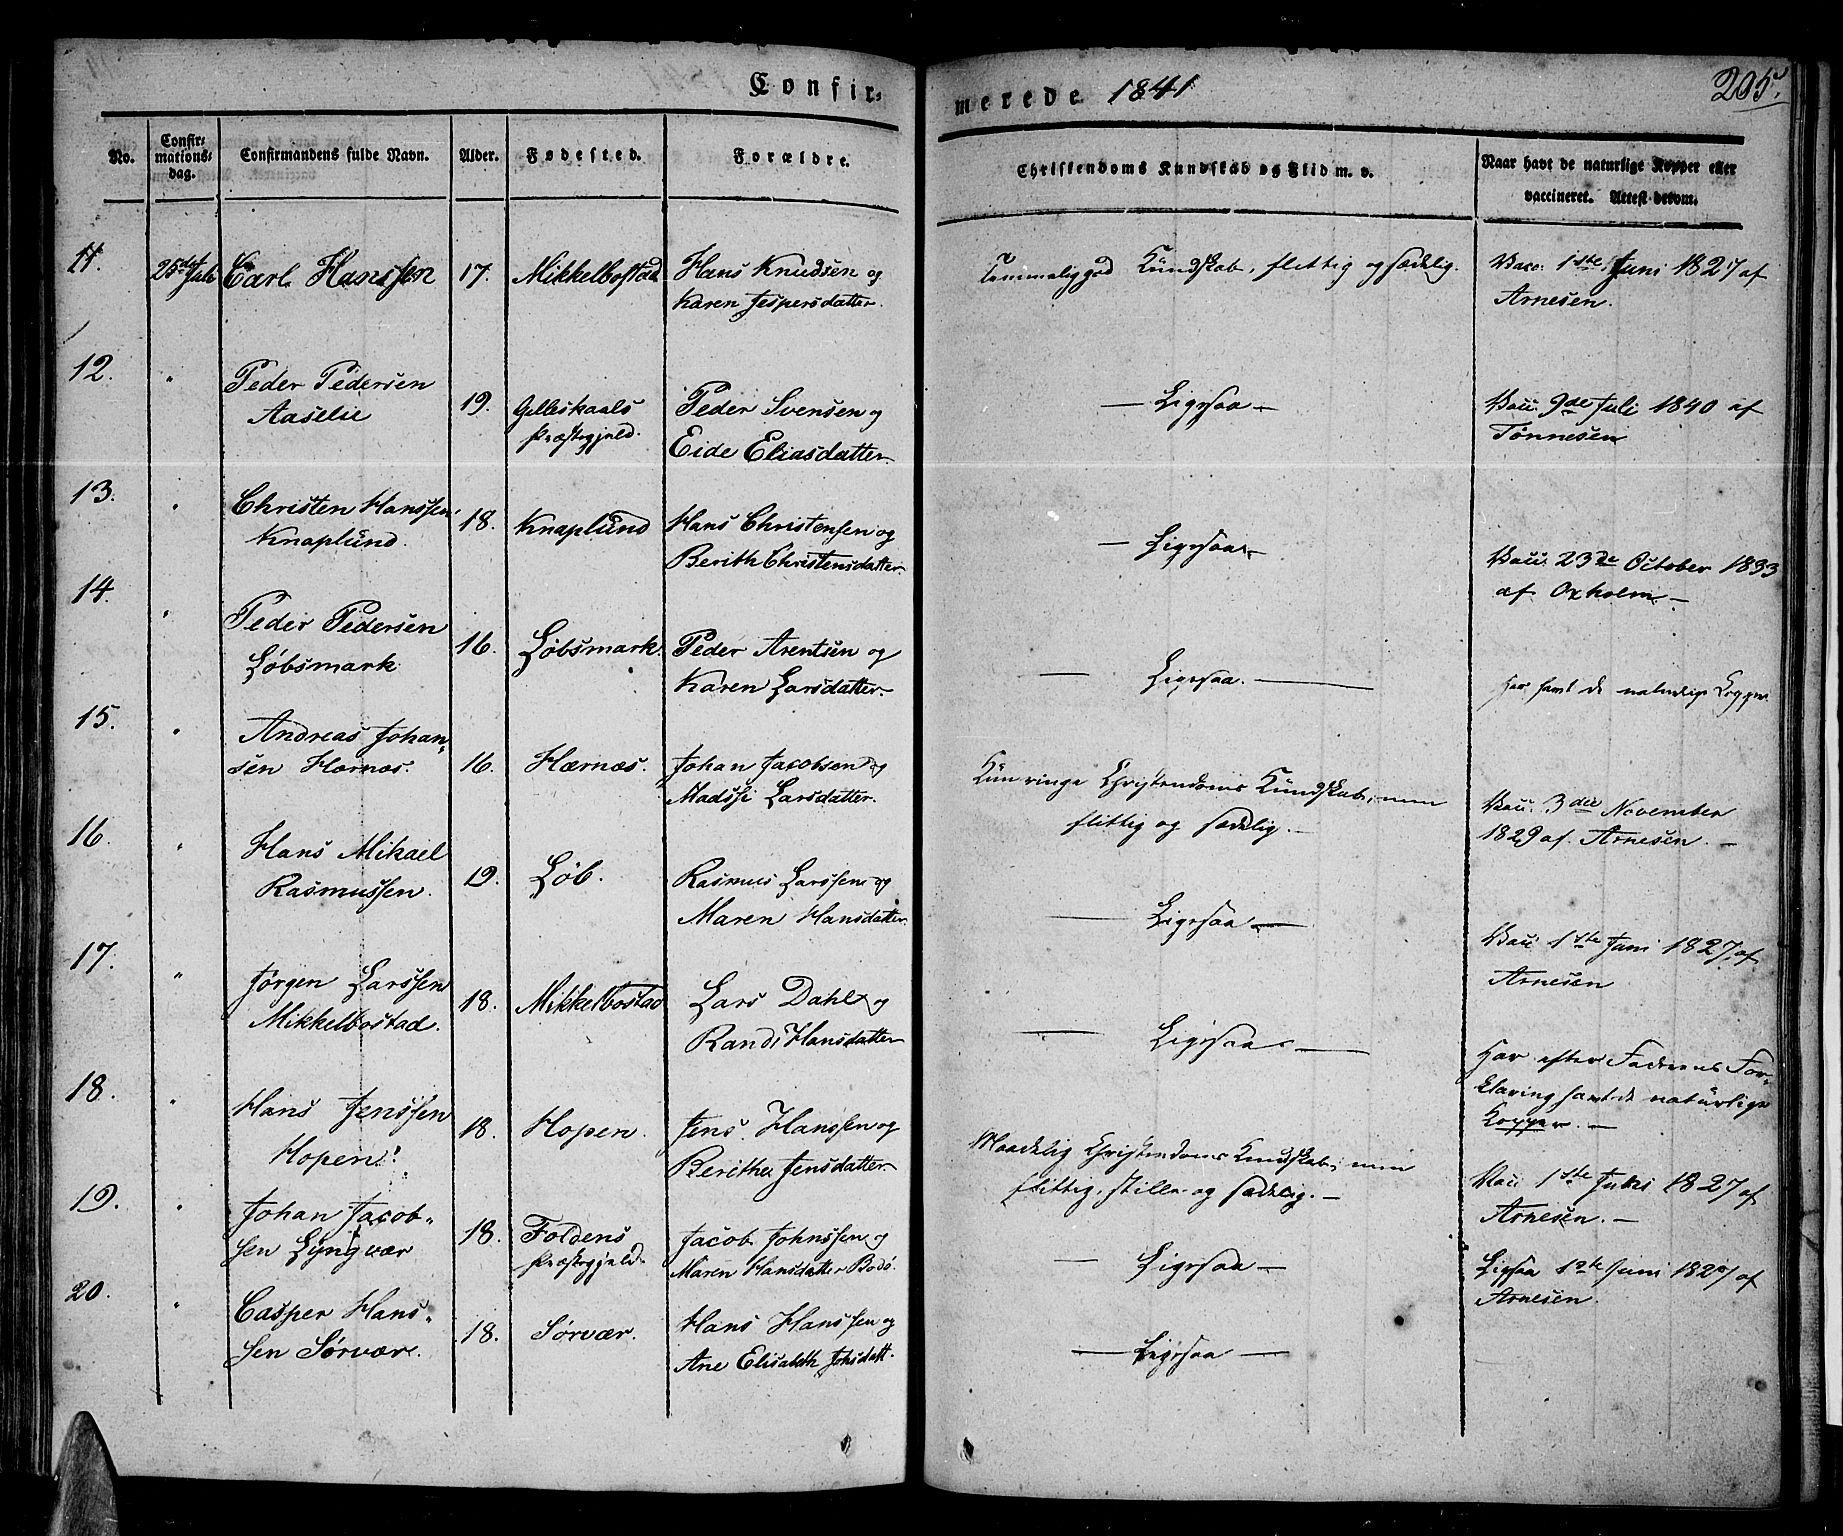 Confir=
merede 1841
205.
No.
Confir=
mations=
dag.
Confirmandens fulde Navn.
Alder.
Fødested.
Forældre.
Christendoms Kundskab og Flid m. v.
Naar havt de naturlige Kopper eller
vaccineret. Attest derom.
11.
25de Juli
Carl Hanssen
17.
Mikkelbostad
Hans Knudsen og
Karen Jespersdatter.
Temmelig god Kundskab, flittig og sædelig.
Vacc. 1ste Juni 1827 af
Arnesen.
12.
"
Peder Pedersen
Aaselie
19.
Gilleskaals
Præstegjeld.
Peder Svensen og
Eide Eliasdatter
— Ligesaa —
Vacc. 9de Juli 1840 af
Tønnesen
13.
"
Christen Hanssen
Knaplund.
18.
Knaplund
Hans Christensen og
Berith Christensdatter.
— Ligesaa —
Vacc. 23de October 1833
af Oxholm. —
14.
"
Peder Pedersen
Løbsmark
16.
Løbsmark.
Peder Arentsen og
Karen Larsdatter.
— Ligesaa. —
Har havt de naturlige Kopper.
15.
"
Andreas Johan=
sen Hærnæs.
16.
Hærnæs.
Johan Jacobsen og
Madssi Larsdatter.
Kun ringe Christendoms Kundskab, men
flittig og sædelig. —
Vacc. 3die November
1829 af Arnesen. —
16.
"
Hans Mikael
Rasmussen.
19.
Løb.
Rasmus Larssen og
Maren Hansdatter
— Ligesaa —
Vacc. 1ste Juni 1827, af
Arnesen
17.
"
Jørgen Larssen
Mikkelbostad.
18.
Mikkelbostad
Lars Dahl og
Randi Hansdatter
— Ligesaa —
Har efter Faderens For=
klaring havt de naturlige
Kopper. —
18.
"
Hans Jenssen
Hopen.
18.
Hopen.
Jens Hanssen og
Berithe Jensdatter
Maadelig Christendoms Kundskab, men
flittig, stille og sædelig. —
Vacc. 1ste Juni 1827 af
Arnesen. —
19.
"
Johan Jacob=
sen Lyngvær
18.
Foldens
Præstegjeld.
Jacob Johnssen og
Maren Hansdatter Bodø.
— Ligesaa —
Ligesaa 1ste Juni 1827 af
Arnesen.
20.
"
Casper Hans=
sen Sørvær.
18.
Sørvær.
Hans Hanssen og
Ane Elisabeth Johsdatt.
— Ligesaa —